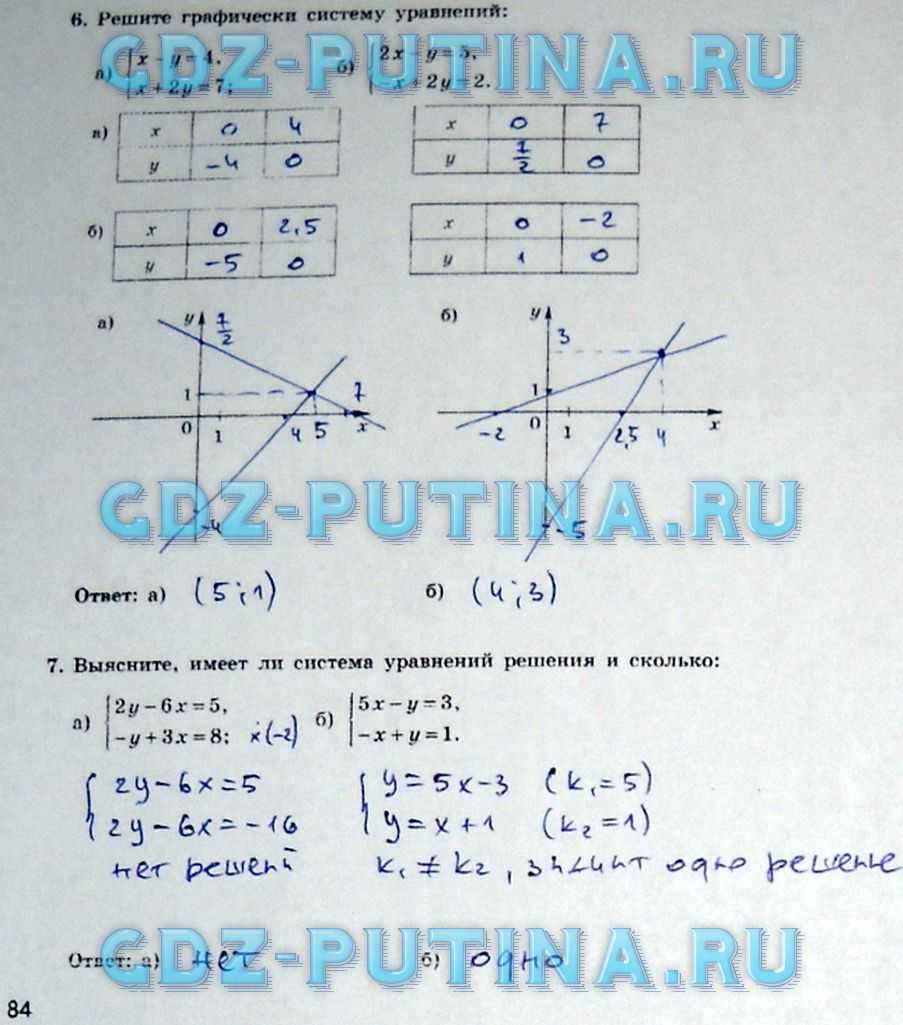 6. Решите графически систему уравнений:
а) { x − y = 4,
x + 2y = 7;
б) { 2x − y = 5,
−x + 2y = 2.
GDZ-PUTINA.RU
а) x 0 4
y −4 0
x 0 7
y 7/2 0
б) x 0 2,5
y −5 0
x 0 −2
y 1 0
а) y 7/2
1
7
0 1 4 5 x
−4
б) y
3
1
−2 0 1 2,5 4 x
−5
GDZ-PUTINA.RU
Ответ: а) (5;1) б) (4;3)
7. Выясните, имеет ли система уравнений решения и сколько:
а) { 2y − 6x = 5,
−y + 3x = 8; ×(−2)
б) { 5x − y = 3,
−x + y = 1.
{ 2y − 6x = 5
2y − 6x = −16
нет решений
{ y = 5x − 3 (k₁ = 5)
y = x + 1 (k₂ = 1)
k₁ ≠ k₂, значит одно решение
GDZ-PUTINA.RU
Ответ: а) нет б) одно
84